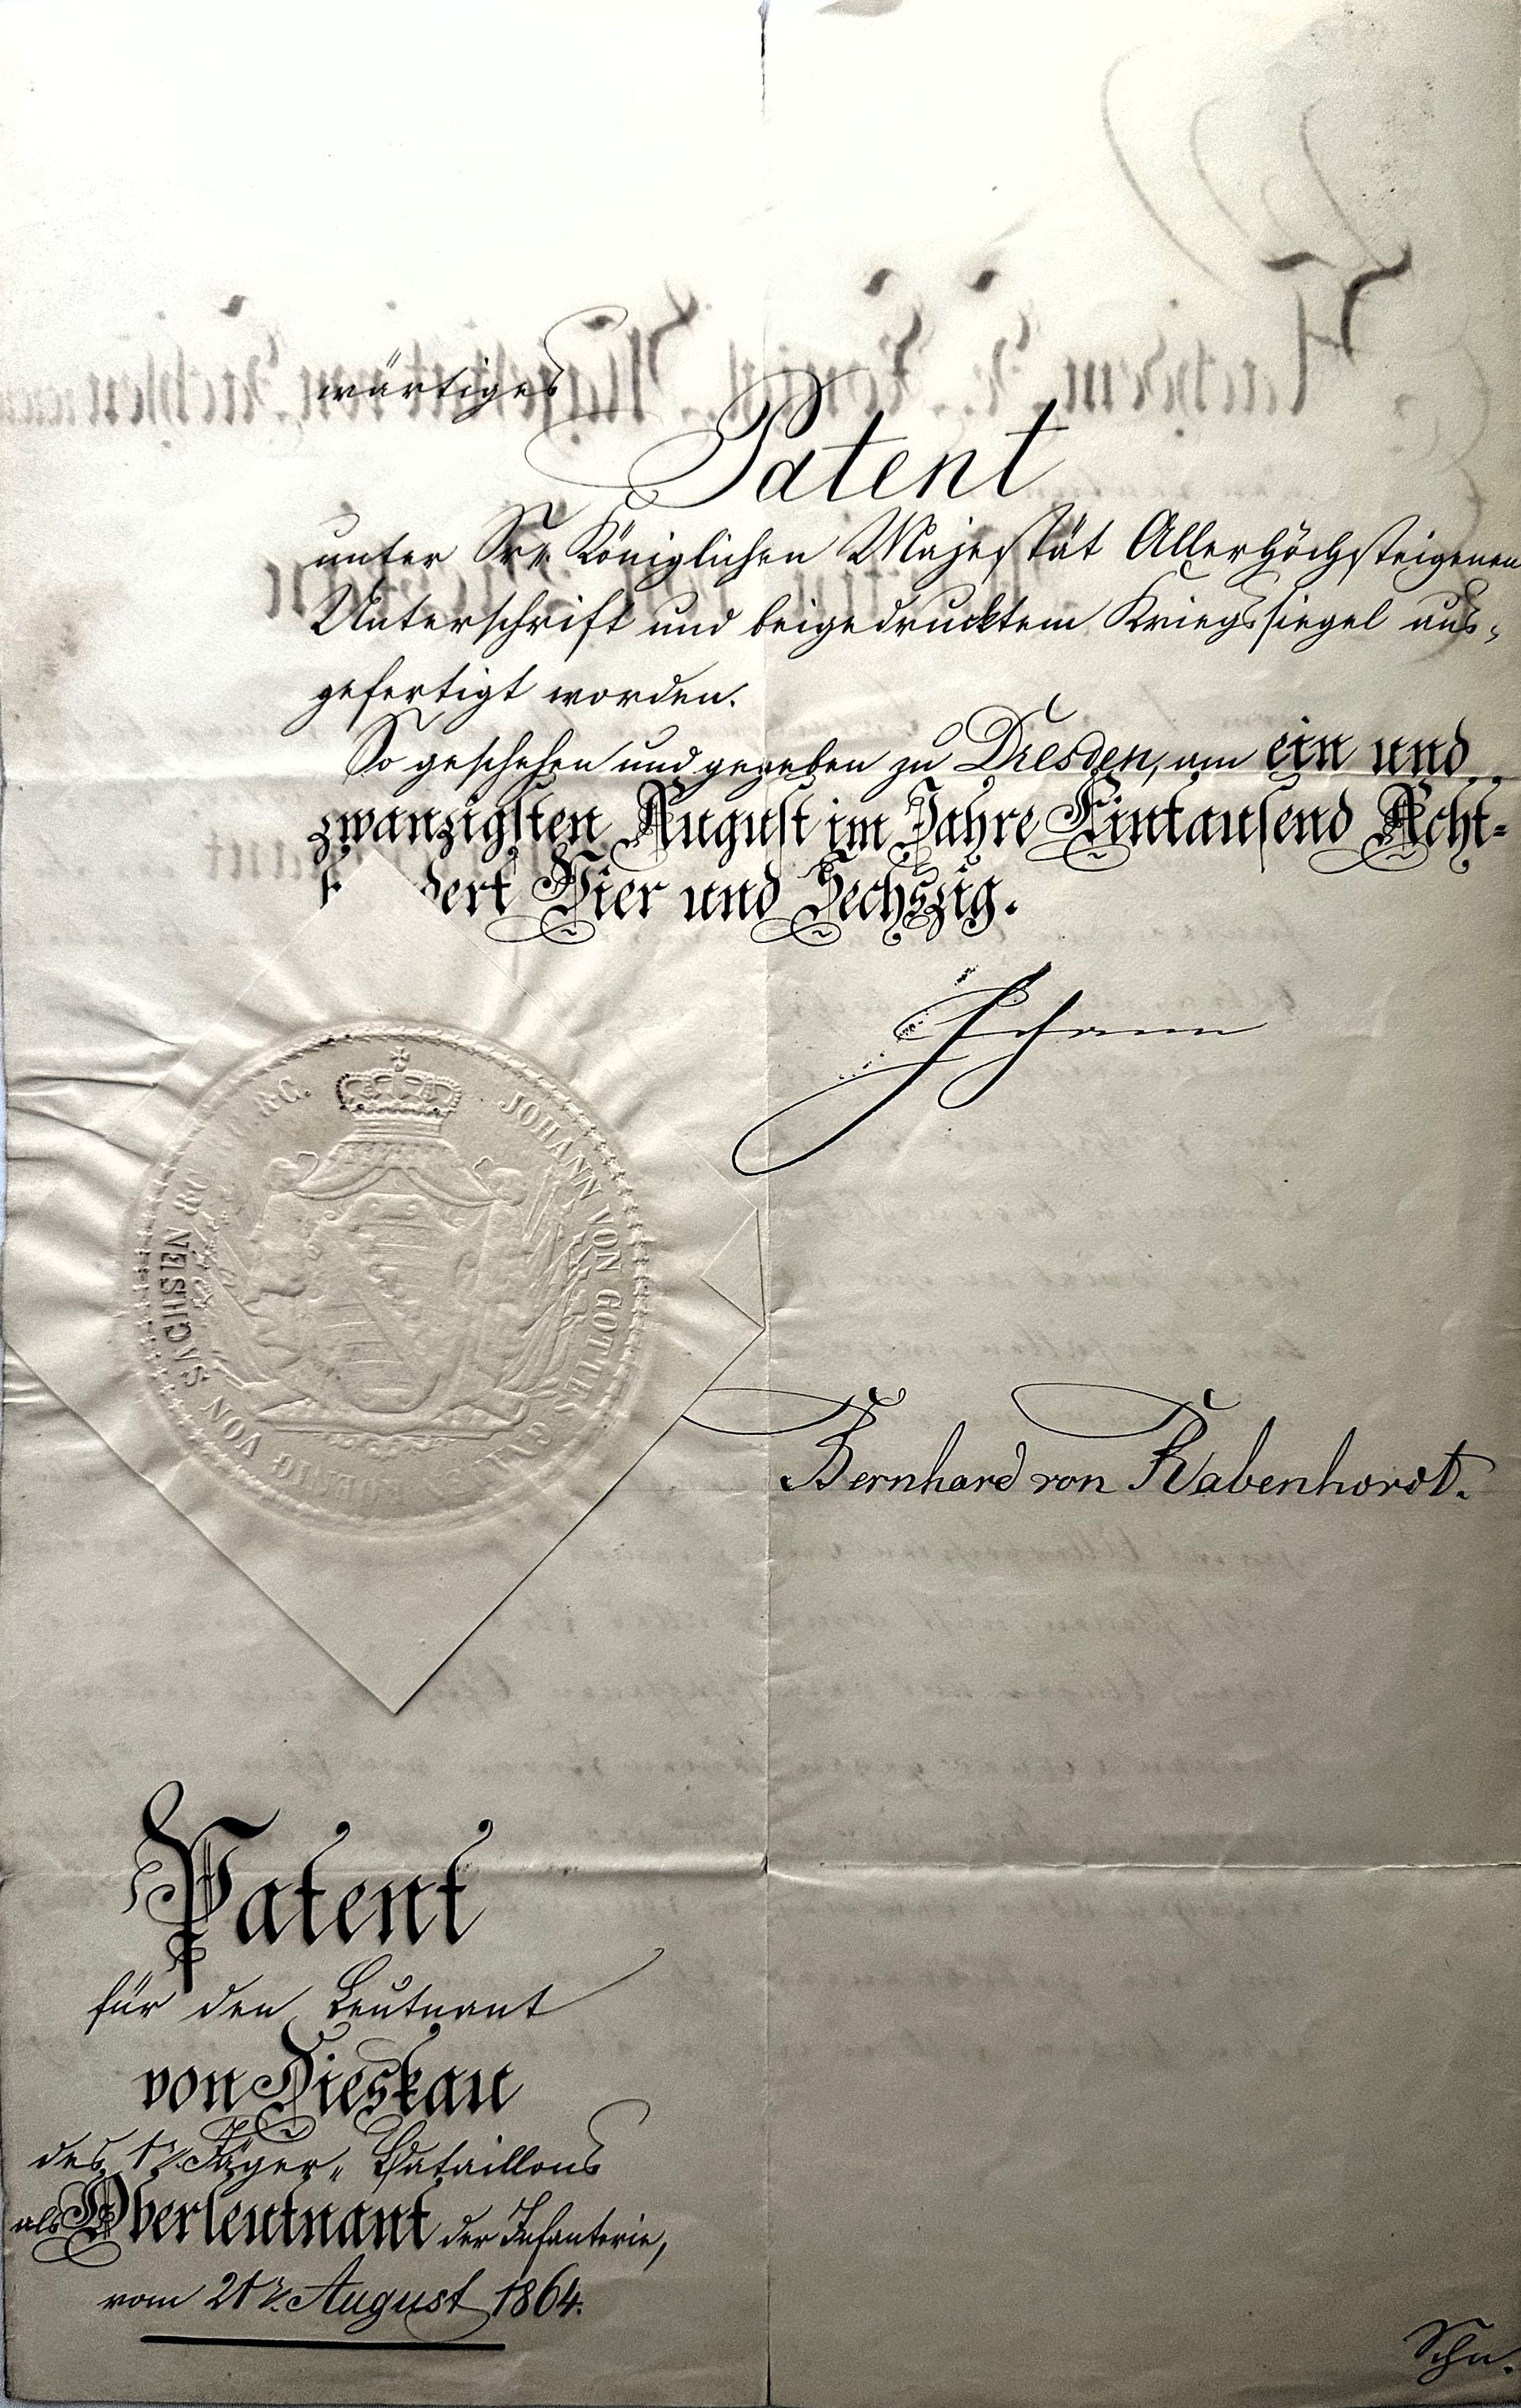 wärtiges
Patent
unter Sr. Königlichen Majestät Allerhöchsteigenen
Unterschrift und beigedrucktem Kriegssiegel aus-
gefertigt worden.
So geschehen und gegeben zu Dresden, am ein und
zwanzigsten August im Jahre Eintausend Acht-
dert Vier und Sechszig.
Johann
JOHANN VON GOTTES
VON SACHSEN &C &C.
Bernhard von Rabenhorst.
Patent
für den Leutnant
von Dieskau
des 1r. Jäger-Bataillons
als Oberleutnant der Infanterie,
vom 21r. August 1864.
Schn.